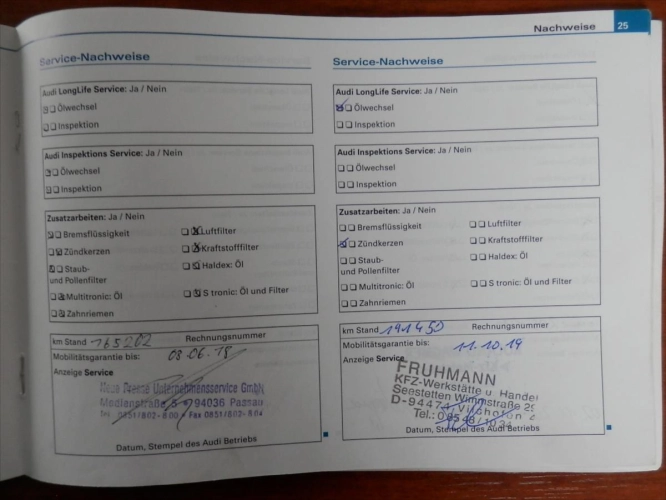 Nachweise 25
Service-Nachweise
Audi LongLife Service: Ja / Nein
Ölwechsel
Inspektion
Audi Inspektions Service: Ja / Nein
Ölwechsel
Inspektion
Zusatzarbeiten: Ja / Nein
Bremsflüssigkeit Luftfilter
Zündkerzen Kraftstofffilter
Staub- Haldex: Öl
und Pollenfilter
Multitronic: Öl S tronic: Öl und Filter
Zahnriemen
km Stand 165202 Rechnungsnummer
Mobilitätsgarantie bis: 08.06.18
Anzeige Service
Neue Presse Unternehmensservice GmbH
Medienstraße 5 94036 Passau
Tel. 0851/802- Fax 0851/802-
Datum, Stempel des Audi Betriebs
Service-Nachweise
Audi LongLife Service: Ja / Nein
Ölwechsel
Inspektion
Audi Inspektions Service: Ja / Nein
Ölwechsel
Inspektion
Zusatzarbeiten: Ja / Nein
Bremsflüssigkeit Luftfilter
Zündkerzen Kraftstofffilter
Staub- Haldex: Öl
und Pollenfilter
Multitronic: Öl S tronic: Öl und Filter
Zahnriemen
km Stand 191450 Rechnungsnummer
Mobilitätsgarantie bis: 11.10.19
Anzeige Service
FRUHMANN
KFZ-Werkstätte u. Handel
Seestetten Wimmstraße
D-94474 Vilshofen
Tel.:
Datum, Stempel des Audi Betriebs